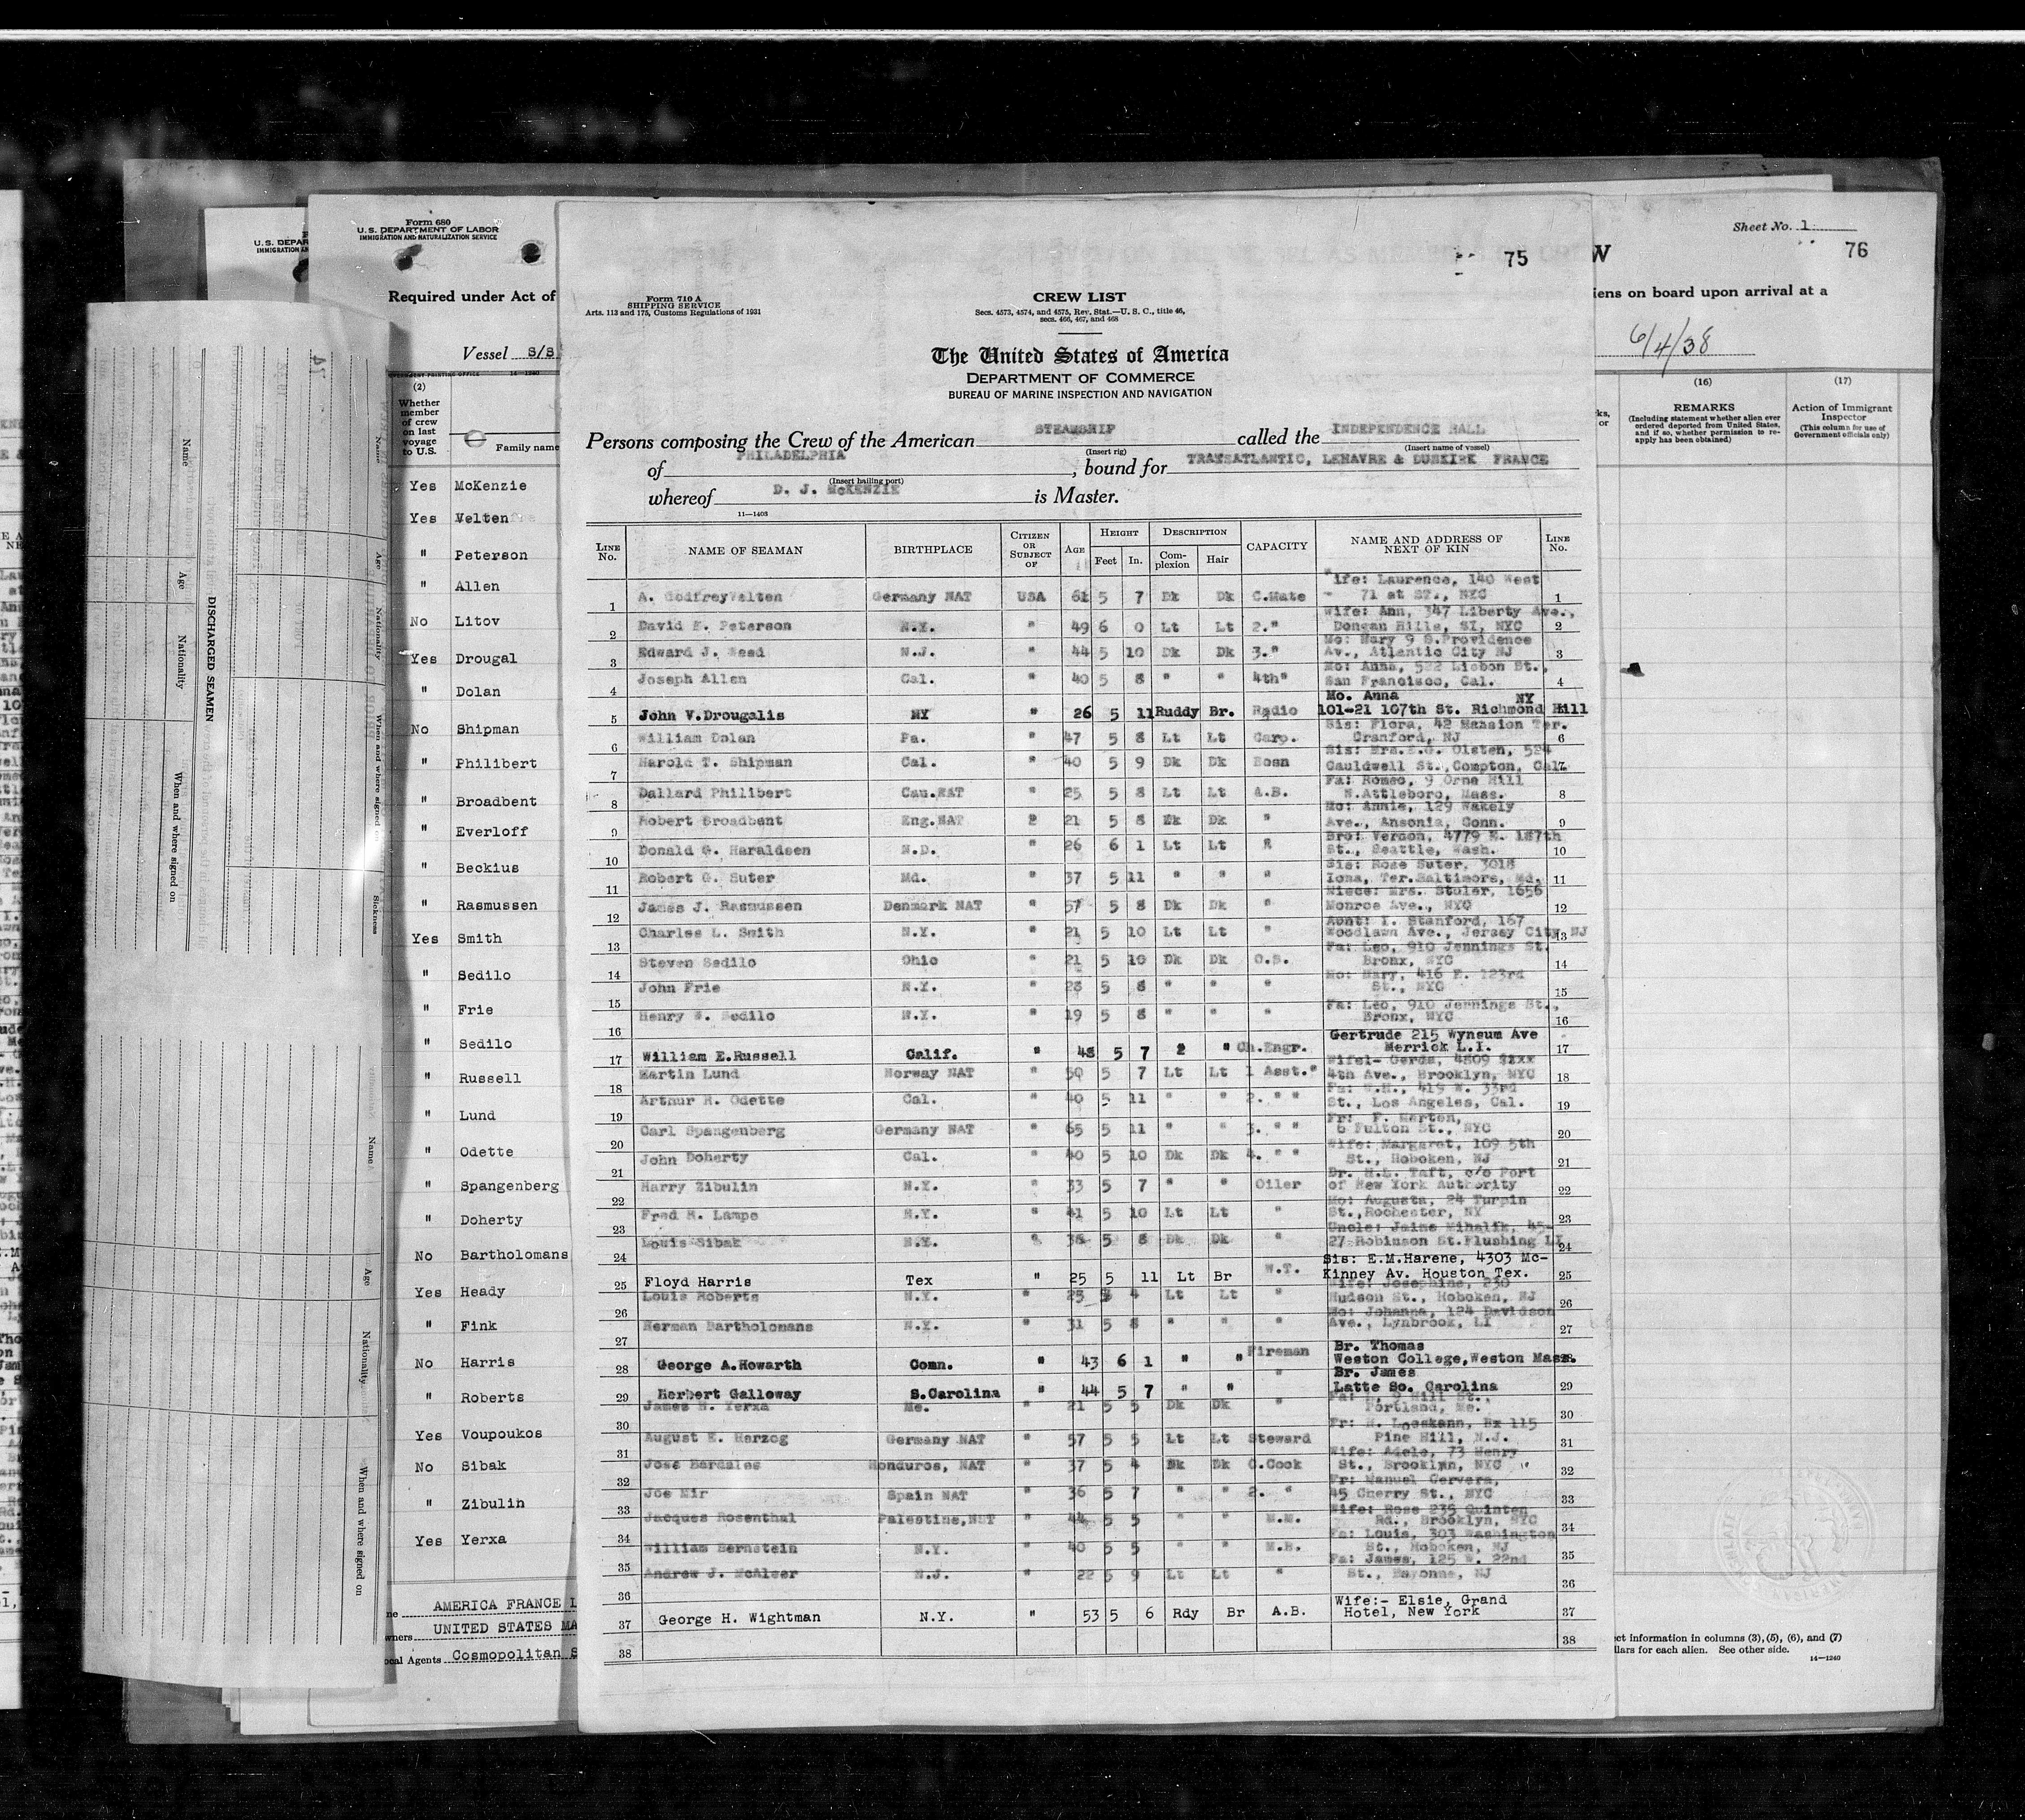 Form 680
U.S. DEPARTMENT OF LABOR
IMMIGRATION AND NATURALIZATION SERVICE
U.S. DEPAR
IMMIGRATION AN
Required under Act of
Vessel S/S
(2)
Whether
member
of crew
on last
voyage
to U.S.
Family name
Yes McKenzie
Yes Velten
" Peterson
" Allen
No Litov
Yes Drougal
" Dolan
No Shipman
" Philibert
" Broadbent
" Everloff
" Beckius
" Rasmussen
Yes Smith
" Sedilo
" Frie
" Sedilo
" Russell
" Lund
" Odette
" Spangenberg
" Doherty
No Bartholomans
Yes Heady
" Fink
No Harris
" Roberts
Yes Voupoukos
No Sibak
" Zibulin
Yes Yerxa
AMERICA FRANCE L
wners UNITED STATES MA
ocal Agents Cosmopolitan S
DISCHARGED SEAMEN
Name
Age
Nationality
When and where signed on
Name
Age
Nationality
When and where signed on
Sickness
Name
Age
Nationality
When and where signed on
75
Form 710 A
SHIPPING SERVICE
Arts. 113 and 175, Customs Regulations of 1931
CREW LIST
Secs. 4573, 4574, and 4575, Rev. Stat.—U. S. C., title 46,
secs. 466, 467, and 468
The United States of America
DEPARTMENT OF COMMERCE
BUREAU OF MARINE INSPECTION AND NAVIGATION
Persons composing the Crew of the American STEAMSHIP called the INDEPENDENCE HALL
(Insert rig) (Insert name of vessel)
of PHILADELPHIA, bound for TRANSATLANTIC, LEHAVRE & DUNKIRK FRANCE
(Insert hailing port)
whereof D. J. McKENZIE is Master.
11—1403
LINE No. NAME OF SEAMAN BIRTHPLACE CITIZEN OR SUBJECT OF AGE HEIGHT Feet In. DESCRIPTION Complexion Hair CAPACITY NAME AND ADDRESS OF NEXT OF KIN LINE No.
1 A. GodfreyVelten Germany NAT USA 61 5 7 Dk Dk C.Mate ife: Laurence, 140 West 71 at ST., NYC 1
2 David E. Peterson N.Y. " 49 6 0 Lt Lt 2." Wife: Ann, 347 Liberty Ave., Dongan Hills, SI, NYC 2
3 Edward J. Weed N.J. " 44 5 10 Dk Dk 3." Mo: Mary 9 S.Providence Av., Atlantic City NJ 3
4 Joseph Allen Cal. " 40 5 8 " " 4th" Mo: Anna, 522 Lisbon St., San Francisco, Cal. 4
5 John V.Drougalis NY " 26 5 11 Ruddy Br. Radio Mo. Anna NY 101-21 107th St. Richmond Hill
6 William Dolan Pa. " 47 5 8 Lt Lt Carp. Sis: Flora, 42 Mansion Ter. Cranford, NJ 6
7 Harold T. Shipman Cal. " 40 5 9 Dk Dk Bosn Sis: Mrs.E.G. Olsten, 524 Cauldwell St.,Compton, Cal. 7
8 Dallard Philibert Cau.NAT " 25 5 8 Lt Lt A.B. Fa: Romeo, 9 Orne Hill N.Attleboro, Mass. 8
9 Robert Broadbent Eng.NAT 2 21 5 8 Dk Dk " Mo: Annie, 129 Wakely Ave., Ansonia, Conn. 9
10 Donald G. Haraldsen N.D. " 26 6 1 Lt Lt Bro: Vernon, 4779 E. 187th St., Seattle, Wash. 10
11 Robert G. Suter Md. " 37 5 11 " " " Sis: Rose Suter, 3018 Iona, Ter.Baltimore, Md. 11
12 James J. Rasmussen Denmark NAT " 57 5 8 Dk Dk " Niece: Mrs. Stoler, 1656 Monroe Ave., NYC 12
13 Charles L. Smith N.Y. " 21 5 10 Lt Lt " Aunt: I. Stanford, 167 Woodlawn Ave., Jersey City NJ 13
14 Steven Sedilo Ohio " 21 5 10 Dk Dk O.S. Fa: Leo, 910 Jennings St. Bronx, NYC 14
15 John Frie N.Y. " 23 5 8 " " " Mo: Mary, 416 E. 123rd St., NYC 15
16 Henry W. Sedilo N.Y. " 19 5 8 " " " Fa: Leo, 910 Jennings St., Bronx, NYC 16
17 William E.Russell Calif. " 48 5 7 2 " Ch.Engr. Gertrude 215 Wynsum Ave Merrick L.I. 17
18 Martin Lund Norway NAT " 50 5 7 Lt Lt 1 Asst." Wife:- Gerda, 4809 4th Ave., Brooklyn, NYC 18
19 Arthur H. Odette Cal. " 40 5 11 " " 2. " " Fa: W.H., 419 W. 33rd St., Los Angeles, Cal. 19
20 Carl Spangenberg Germany NAT " 65 5 11 " " 3. " " Fr: F. Marten, 6 Fulton St., NYC 20
21 John Doherty Cal. " 40 5 10 Dk Dk 4. " " Wife: Margaret, 109 5th St., Hoboken, NJ 21
22 Harry Zibulin N.Y. " 33 5 7 " " Oiler Br. H.L. Taft, c/o Port of New York Authority 22
23 Fred H. Lampe N.Y. " 41 5 10 Lt Lt " Mo: Augusta, 24 Turpin St.,Rochester, NY 23
24 Louis Sibak N.Y. " 38 5 8 Dk Dk " Uncle: Jains Mihalik, 45-27 Robinson St.Flushing LI 24
25 Floyd Harris Tex " 25 5 11 Lt Br W.T. Sis: E.M.Harene, 4303 McKinney Av. Houston Tex. 25
26 Louis Roberts N.Y. " 25 4 Lt Lt " Wife: Josephine, 230 Hudson St., Hoboken, NJ 26
27 Herman Bartholomans N.Y. " 31 5 8 " " " Mo: Johanna, 124 Davidson Ave., Lynbrook, LI 27
28 George A.Howarth Conn. " 43 6 1 " " Fireman Br. Thomas Weston College,Weston Mass. 28
29 Herbert Galloway S.Carolina " 44 5 7 " " " Br. James Latte So. Carolina 29
30 James H. Yerxa Me. " 21 5 5 Dk Dk " Fa: Portland, Me. 30
31 August E. Herzog Germany NAT " 57 5 5 Lt Lt Steward Fr: H. Bx 115 Pine Hill, N.J. 31
32 Jose Bardales Honduros, NAT " 37 5 4 Dk Dk C.Cook Wife: Adele, 73 Henry St., Brooklyn, NYC 32
33 Joe Mir Spain NAT " 36 5 7 " " 2. " Fr: Manuel Cervera, 45 Cherry St., NYC 33
34 Jacques Rosenthal Palestine, " 44 5 5 " " M.M. Wife: Rose 235 Quinten Rd., Brooklyn, NYC 34
35 William Bernstein N.Y. " 40 5 5 " " M.B. Fa: Louis, 303 Washington St., Hoboken, NJ 35
36 Andrew J. McAleer N.J. " 22 5 9 Lt Lt " Fa: James, 125 W. 22nd St., Bayonne, NJ 36
37 George H. Wightman N.Y. " 53 5 6 Rdy Br A.B. Wife:- Elsie, Grand Hotel, New York 37
38 38
Sheet No. 1
76
W
iens on board upon arrival at a
6/4/38
(16) (17)
REMARKS
(Including statement whether alien ever ordered deported from United States, and if so, whether permission to reapply has been obtained)
Action of Immigrant Inspector
(This column for use of Government officials only)
ct information in columns (3), (5), (6), and (7)
llars for each alien. See other side.
14—1240